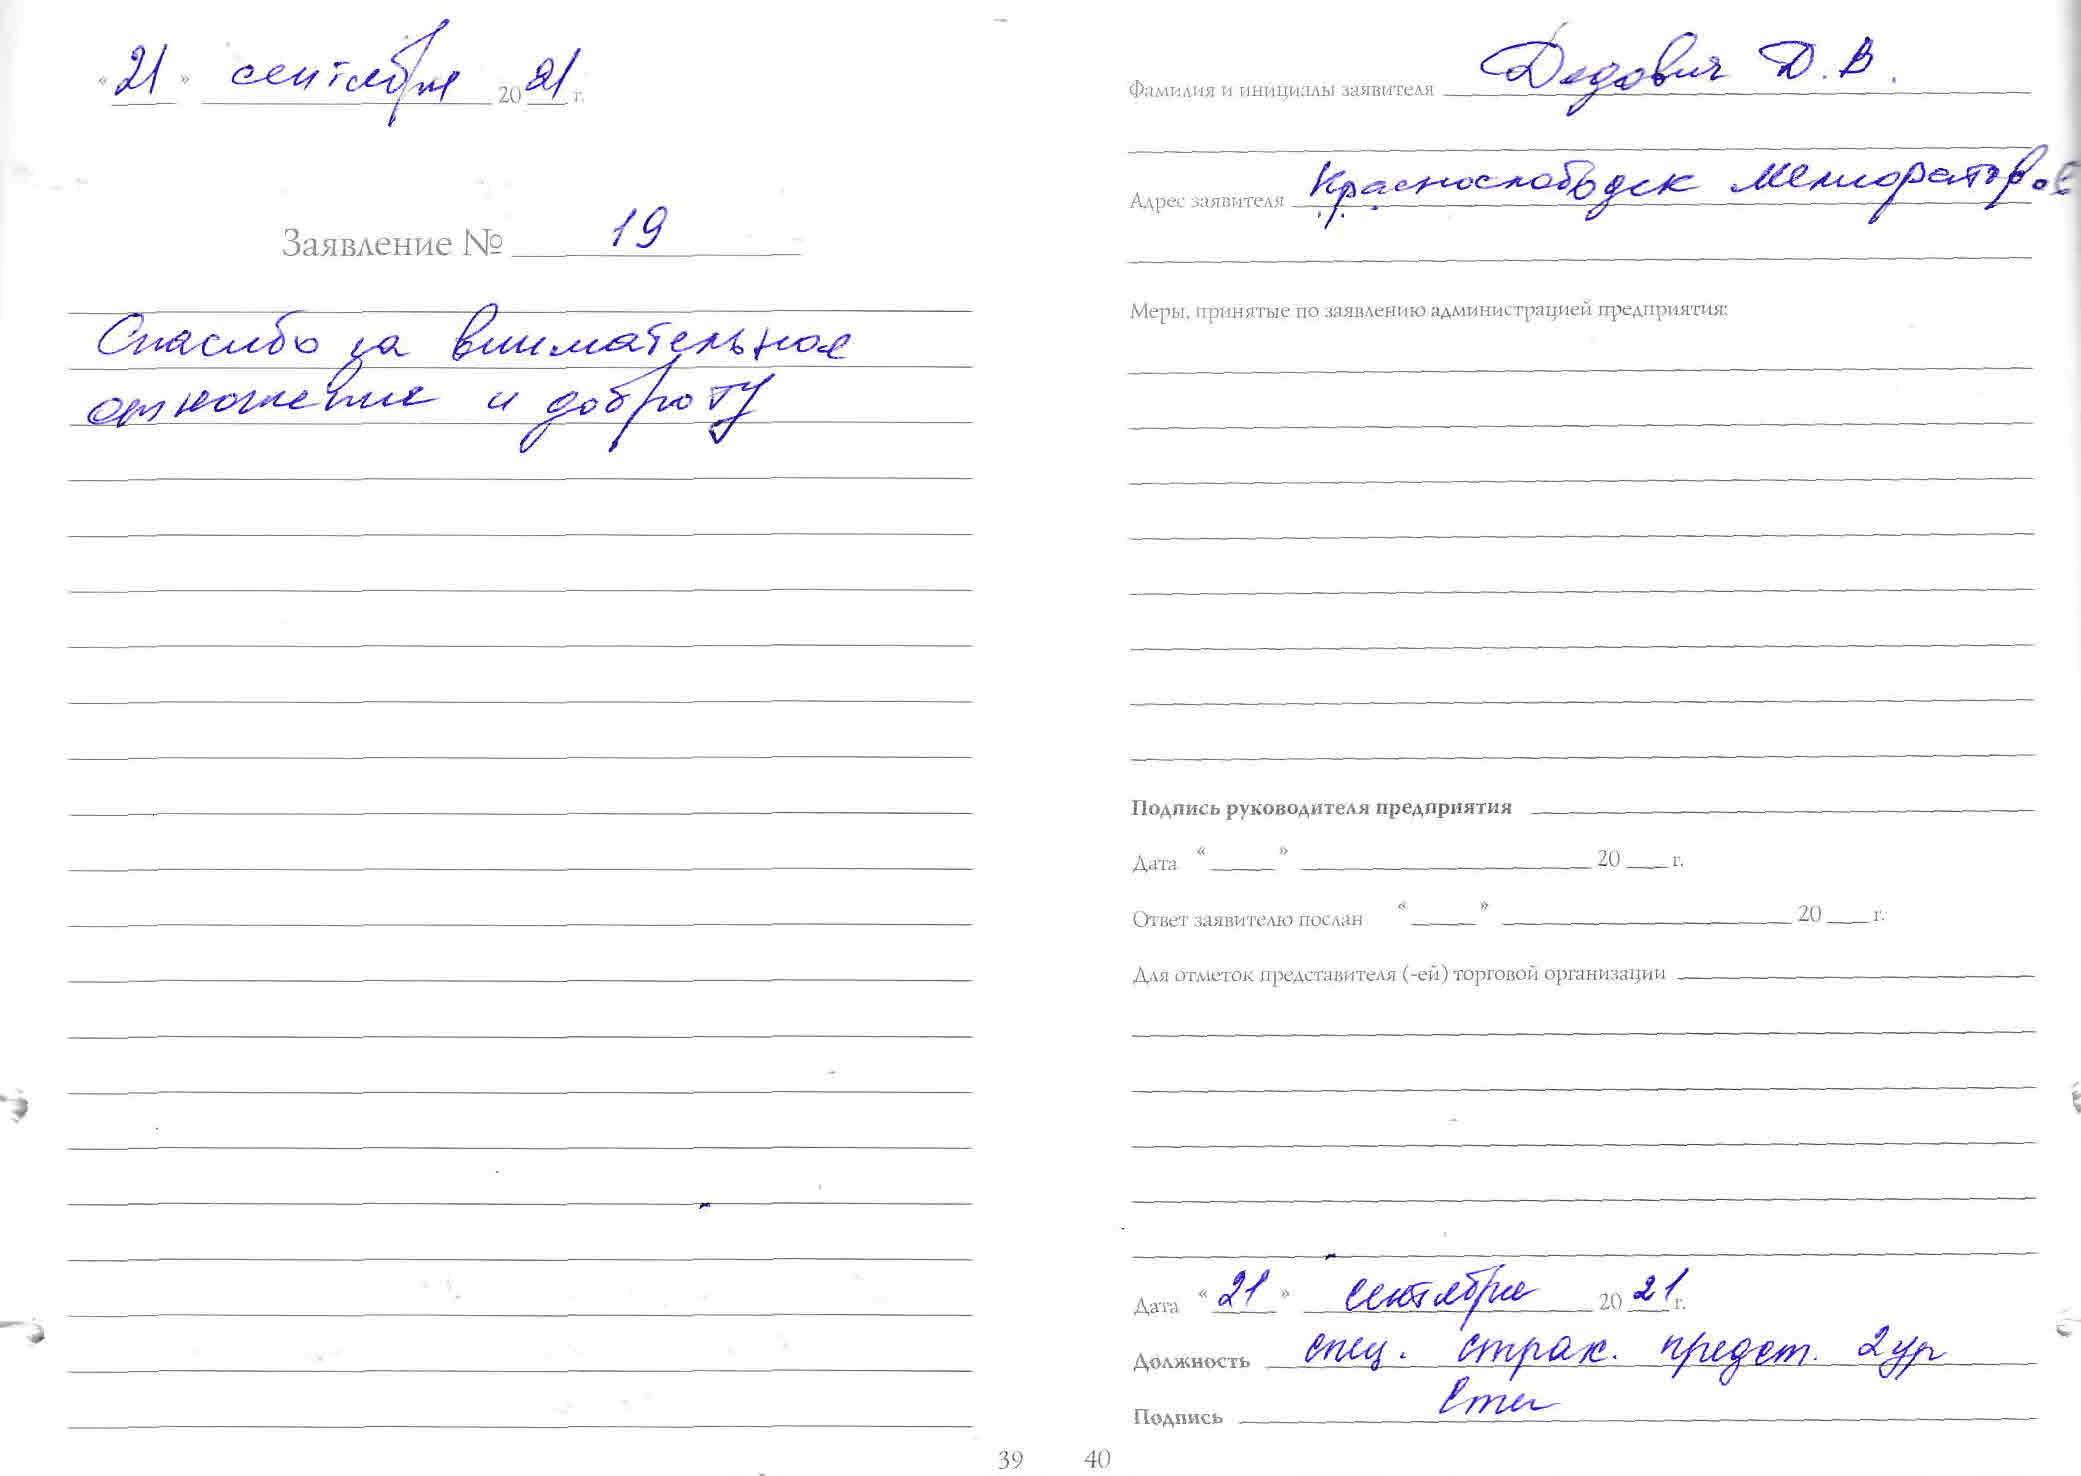 «21» сентября 2021 г.
Заявление № 19
Спасибо за внимательное
отношение и доброту
39
Фамилия и инициалы заявителя Дедович Д. В.
Адрес заявителя Краснослободск Мелиораторов
Меры, принятые по заявлению администрацией предприятия:
Подпись руководителя предприятия
Дата «____» ____ 20 ___ г.
Ответ заявителю послан «____» ____ 20 ___ г.
Для отметок представителя (-ей) торговой организации
Дата «21» сентября 2021 г.
Должность спец. страх. предст. 2 ур
Подпись
40